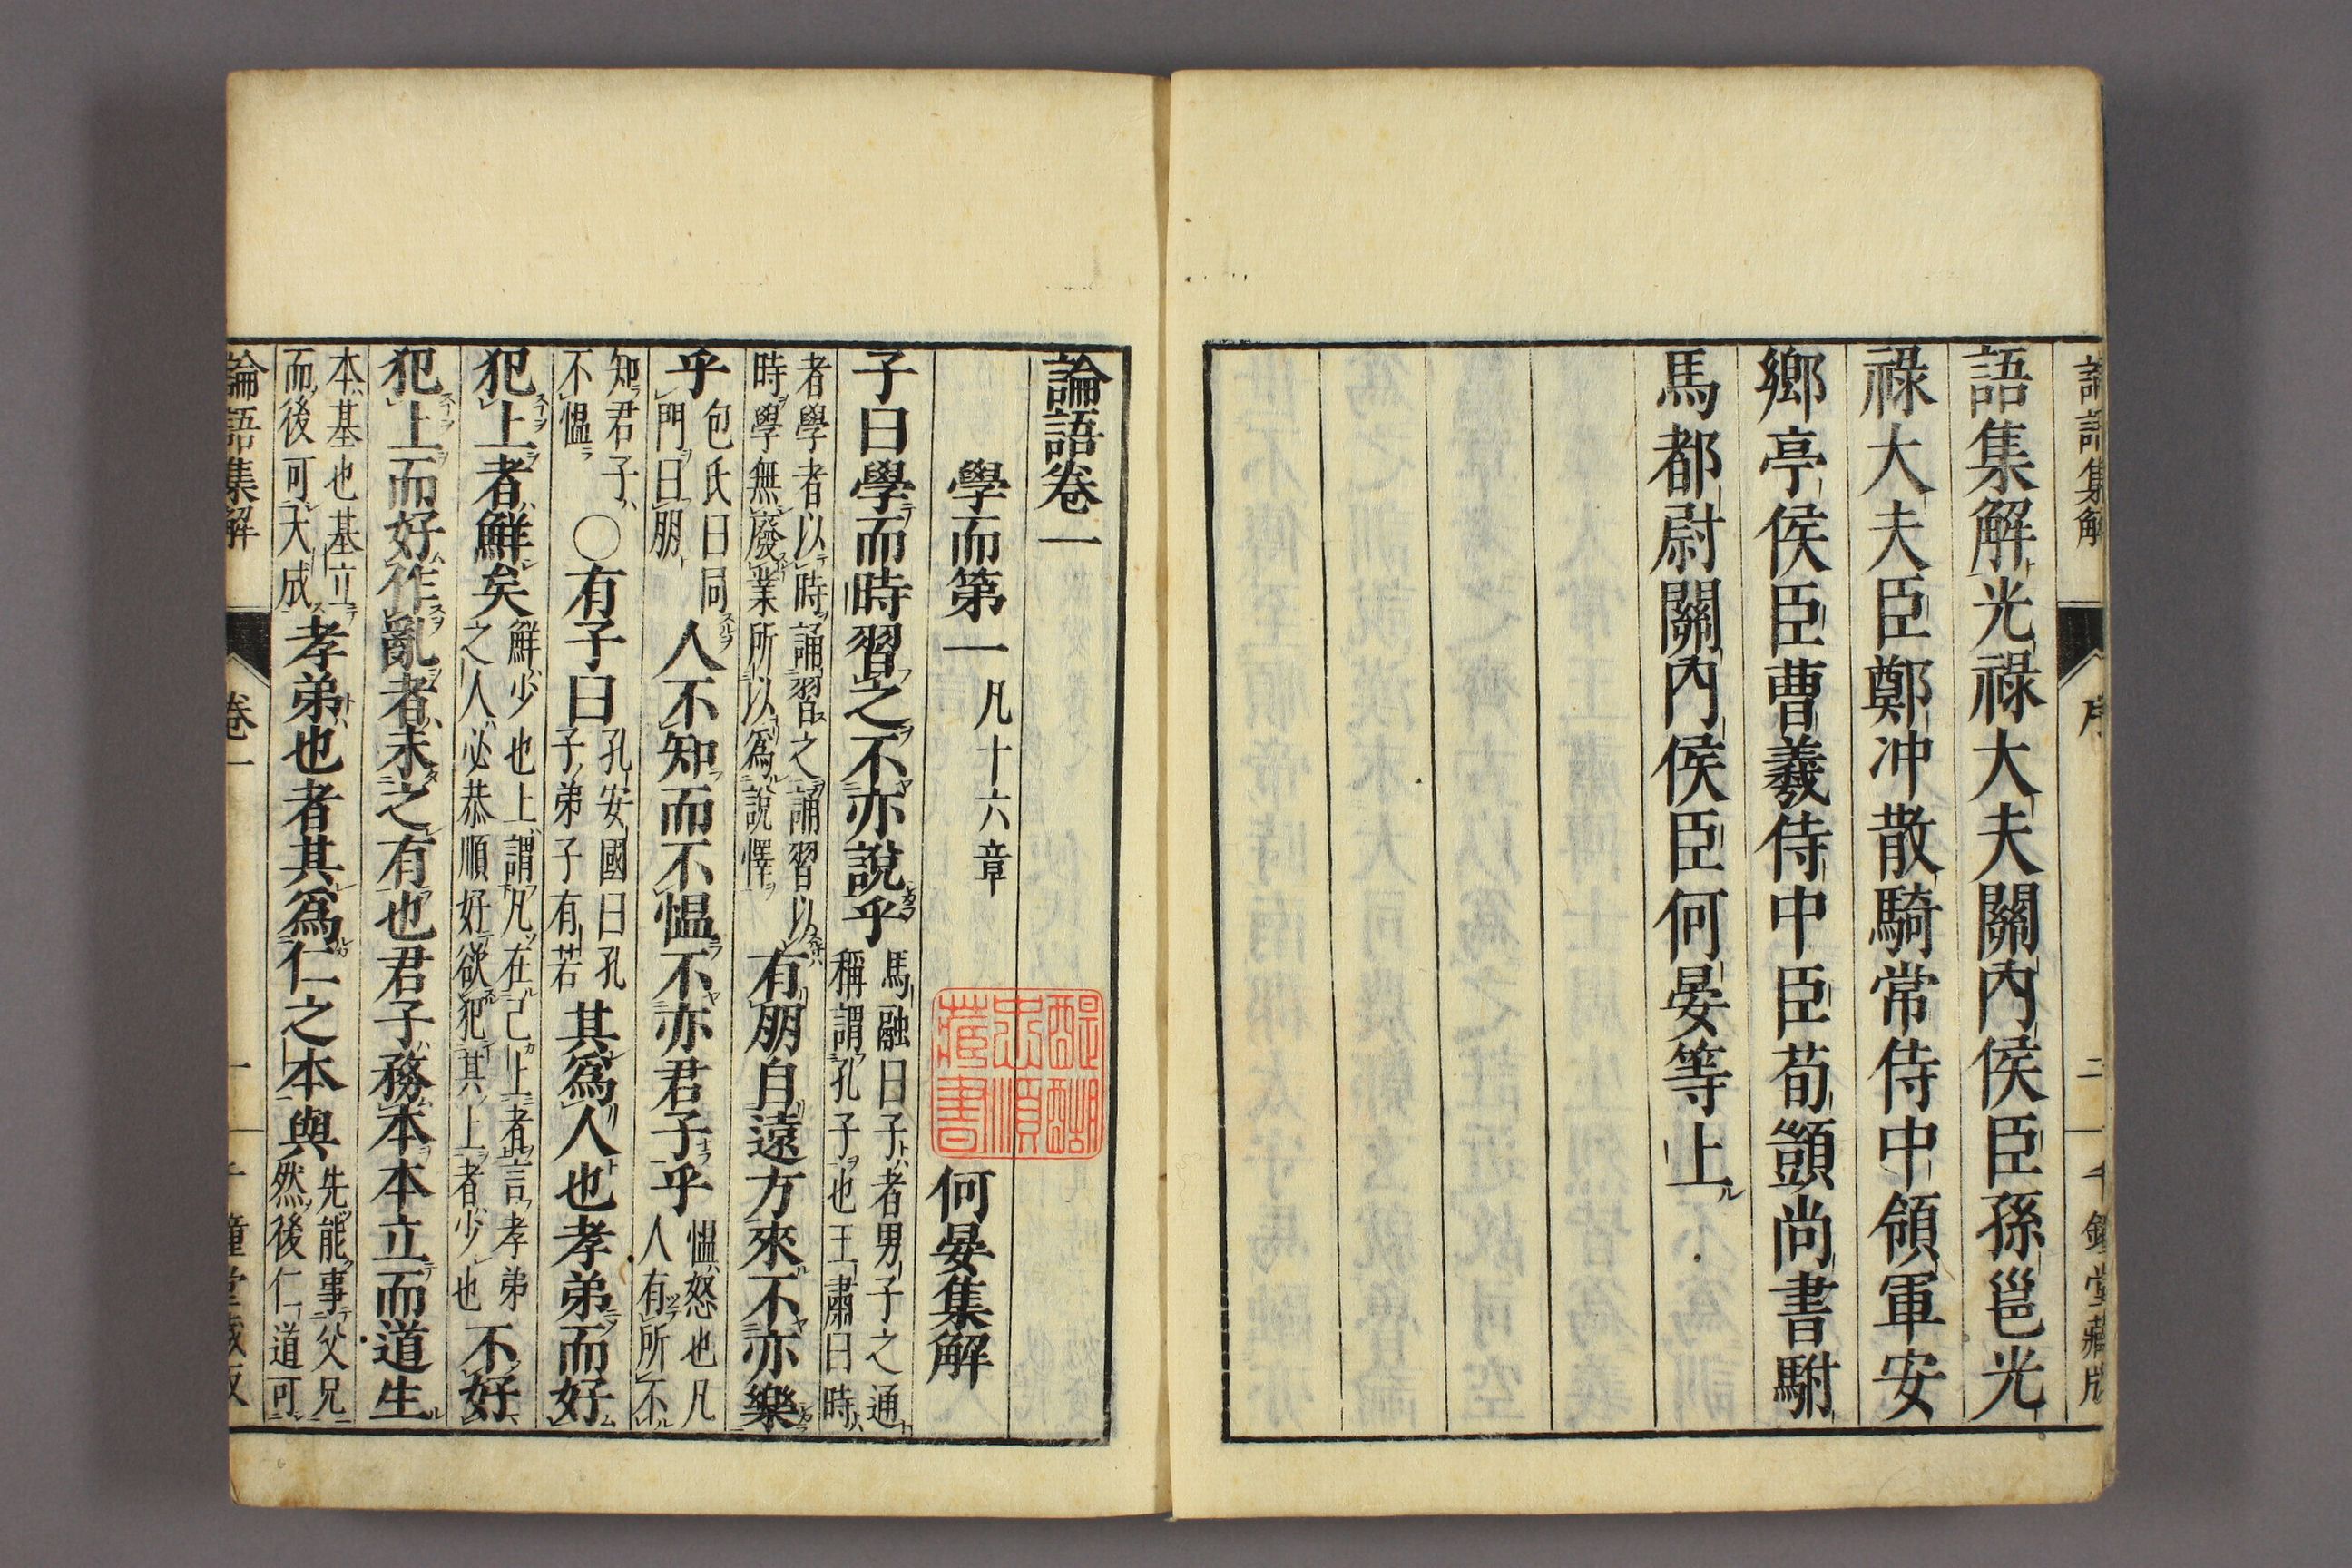 語集解光祿大夫關內侯臣孫邕光
祿大夫臣鄭冲散騎常侍中領軍安
鄉亭侯臣曹羲侍中臣荀顗尚書駙
馬都尉關內侯臣何晏等上
論語卷一
學而第一凡十六章
何晏集解
子曰學而時習之不亦說乎馬融曰子者男子之通
稱謂孔子也王肅曰時
者學者以時誦習之誦習以
時學無廢業所以爲說懌
有朋自遠方來不亦樂
乎包氏曰同
門曰朋
人不知而不慍不亦君子乎慍怒也凡
人有所不
知君子
不慍
〇有子曰孔安國曰孔
子弟子有若
其爲人也孝弟而好
犯上者鮮矣鮮少也上謂凡在己上者言孝弟
之人必恭順好欲犯其上者少也
不好
犯上而好作亂者未之有也君子務本本立而道生
本基也基立
而後可大成
孝弟也者其爲仁之本與先能事父兄
然後仁道可
論語集解
卷一
一